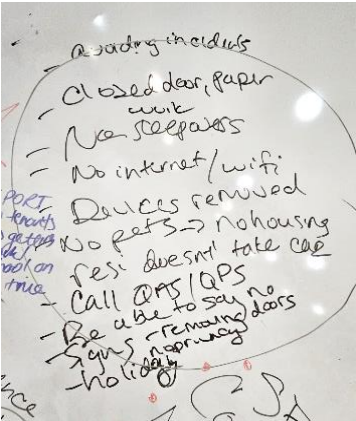 - avoiding incidents
- Closed door, paper
work
- No sleepovers
- No internet/wifi
- Devices removed
- No pets → no housing
resi doesn't take care
- Call QMS/QPS
- Be able to say no
- Signs - removing doors
no privacy
- holiday
PORT
tenants
on
time